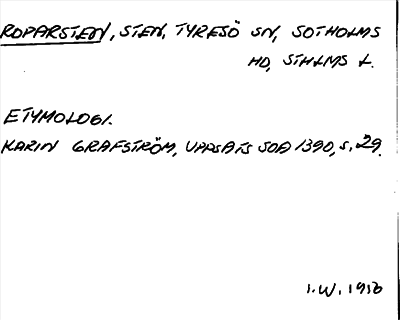 ROPARSTEN, STEN, TYRESÖ SN, SOTHOLMS
HD, STHLMS L.
ETYMOLOGI.
KARIN GRAFSTRÖM, UPPSATS SOÄ 1390, S. 29.
I.W. 1976